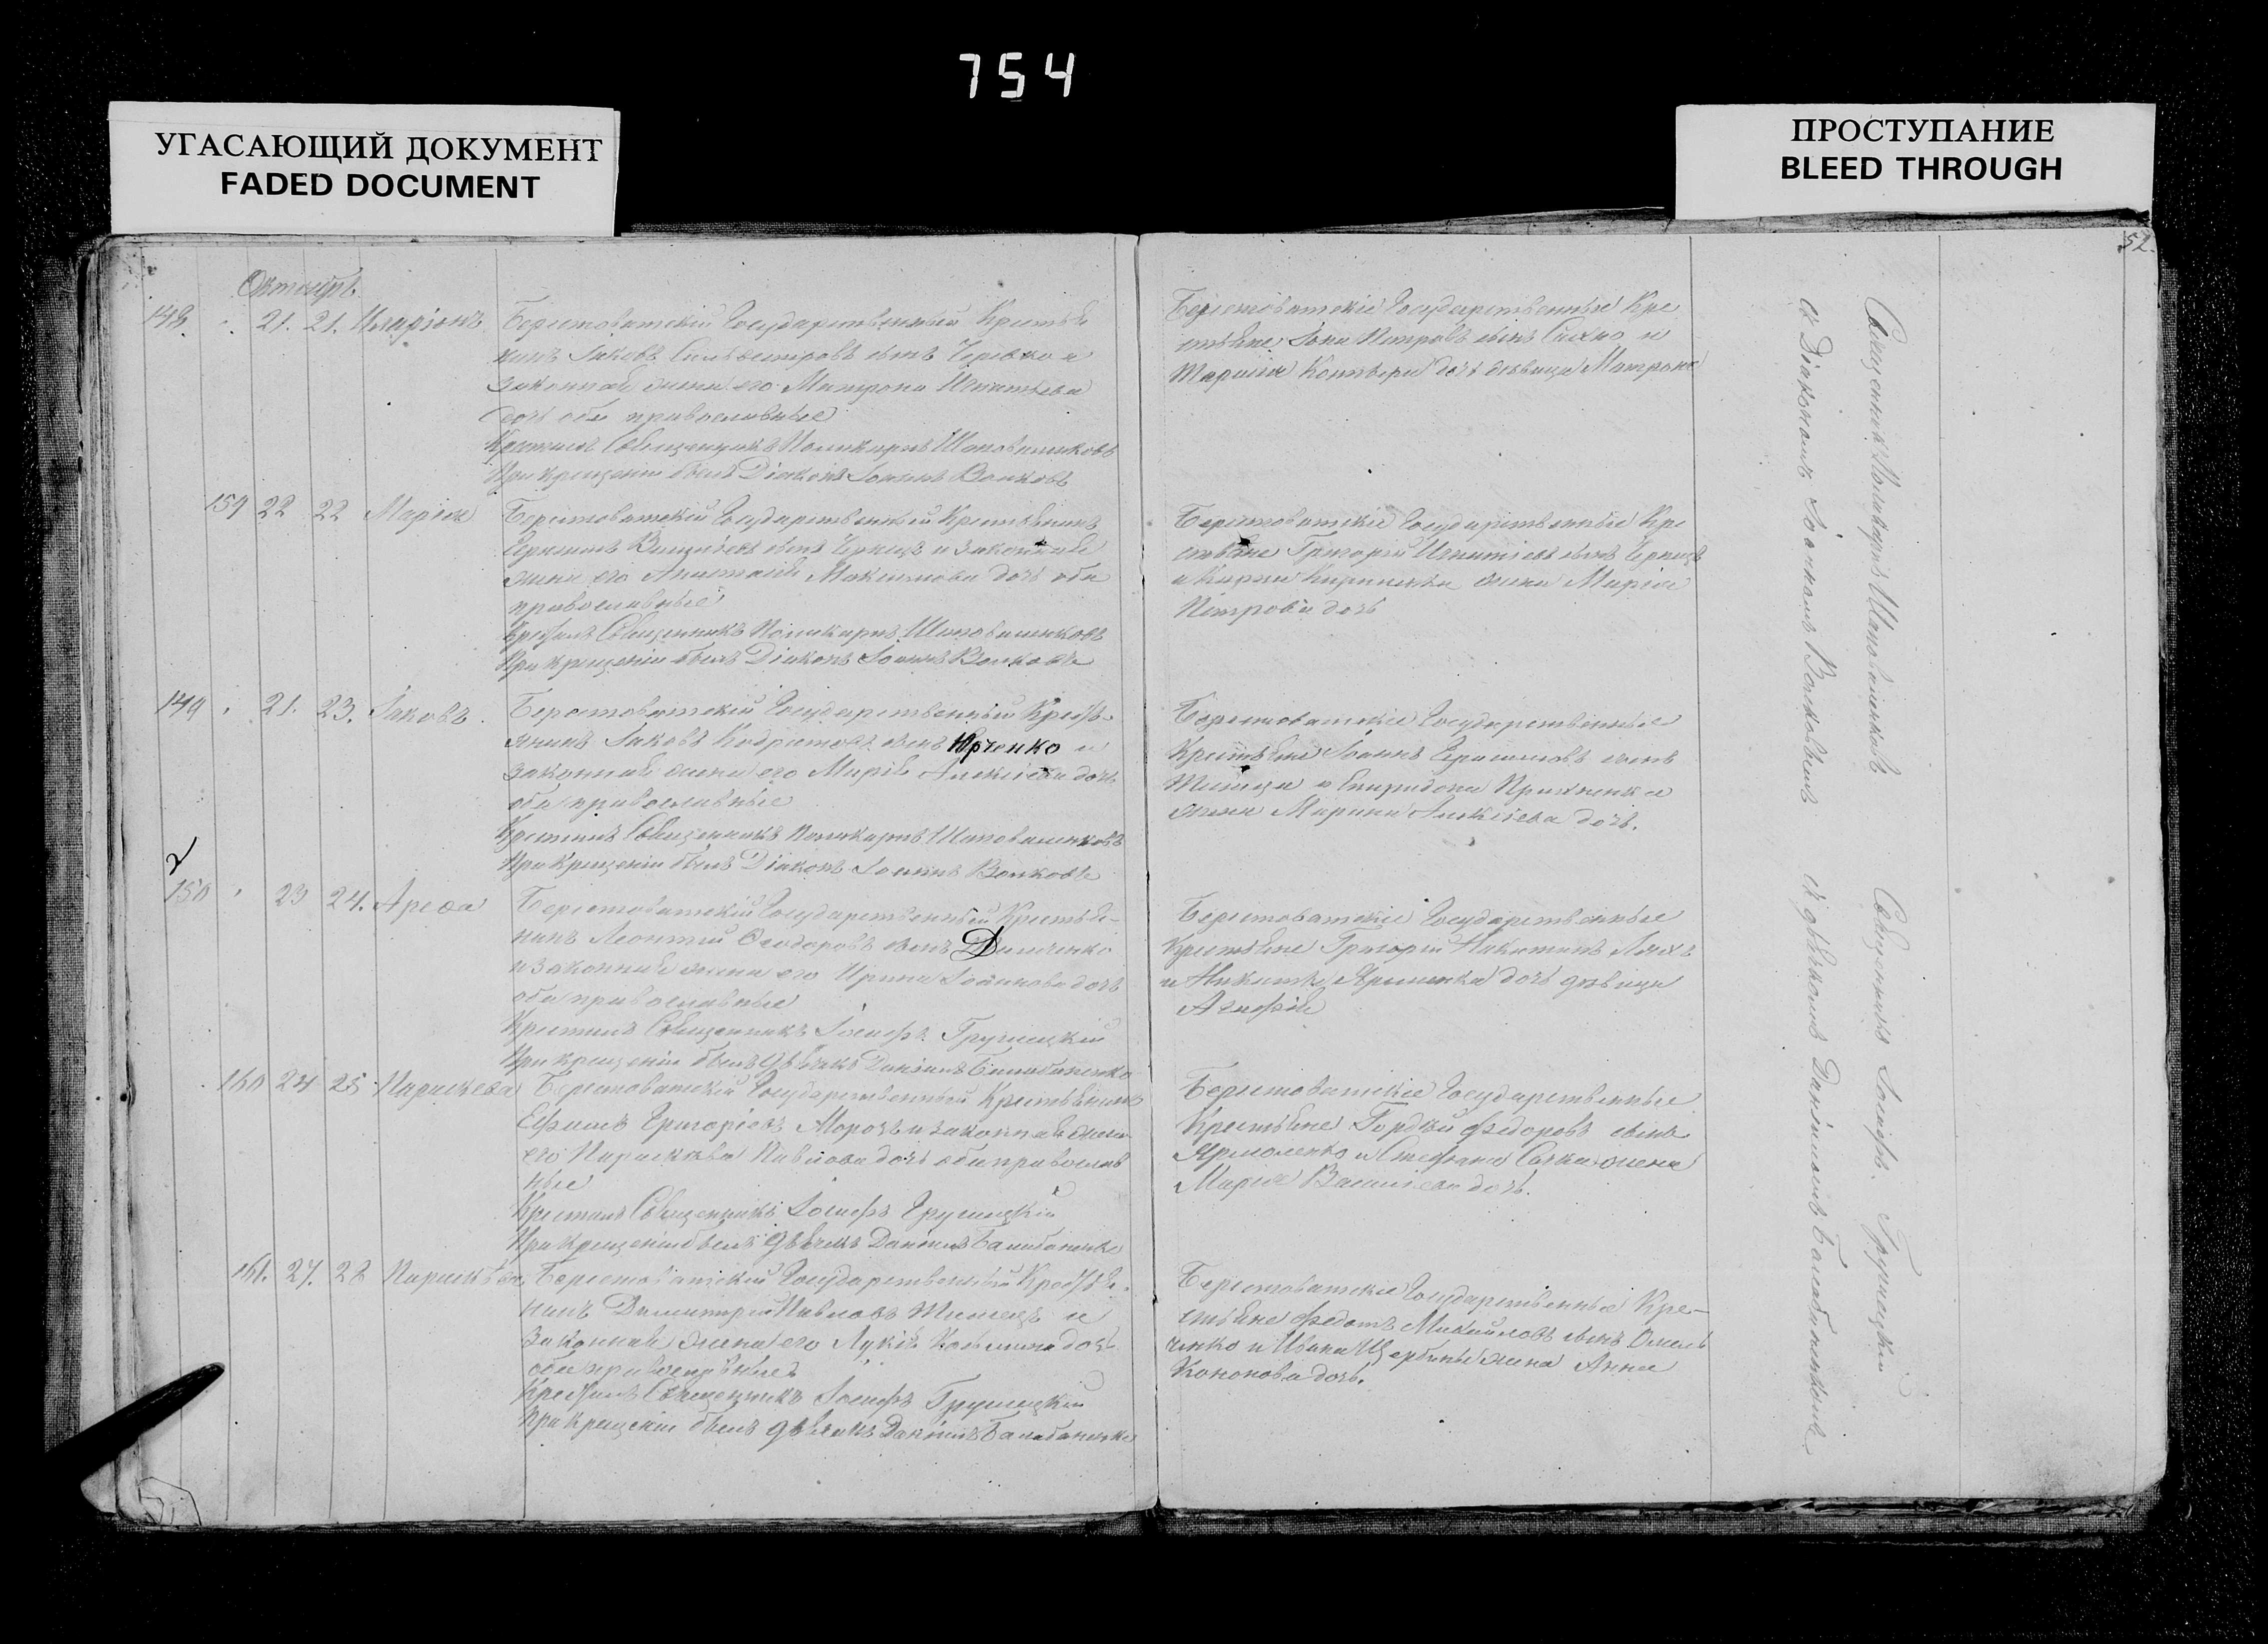 754
УГАСАЮЩИЙ ДОКУМЕНТ
FADED DOCUMENT
ПРОСТУПАНИЕ
BLEED THROUGH
52.
Октябрь
148 21. 21. Иларіонъ
Берестоватскій Государственный Крестья
нинъ Іаковъ Сильвестровъ сынъ и
законная жена его Матрона Игнатьева
дочь оба православные
Крестилъ Священникъ Поликарпъ Шаповаленковъ
При крещеніи былъ Діаконъ Іоаннъ Волковъ
Берестоватскіе Государственные Кре
стьяне Іона Петровъ сынъ и
дочь дѣвица Матрона
159 22 22 Марія
Берестоватскій Государственный Крестьянинъ
сынъ и законная
жена его Анастасія Максимова дочь оба
православные
Крестилъ Священникъ Поликарпъ Шаповаленковъ
При крещеніи былъ Діаконъ Іоаннъ Волковъ
Берестоватскіе Государственные Кре
стьяне Григорій Игнатіевъ сынъ
и жена Марія
Петрова дочь
149 21. 23. Іаковъ
Берестоватскій Государственный Кресть
янинъ Іаковъ сынъ Юрченко и
законная жена его Марія Алексіева дочь
оба православные
Крестилъ Священникъ Поликарпъ Шаповаленковъ
При Крещеніи былъ Діаконъ Іоаннъ Волковъ
Берестоватскіе Государственные
Крестьяне Іоаннъ Герасимовъ сынъ
и Спиридона
жена Марина Алексіева дочь.
2
150 23 24. Арефа
Берестоватскій Государственный Крестья-
нинъ Леонтій Ѳеодоровъ сынъ
и законная жена его Ирина Іоаннова дочь
оба православные
Крестилъ Священникъ Іосифъ Грушецкій
При крещеніи былъ дьячокъ Даніилъ Балабаненко
Берестоватскіе Государственные
Крестьяне Григорій Никитинъ
и Никиты дочь дѣвица
Агафія
160 24 25 Параскева
Берестоватскій Государственный Крестьянинъ
Ефимъ Григоріевъ Морозъ и законная жена
его Параскева Павлова дочь оба православ
ные
Крестилъ Священникъ Іосифъ Грушецкій
При крещеніи былъ дьячекъ Даніилъ Балабаненко
Берестоватскіе Государственные
Крестьяне Гордѣй Федоровъ сынъ
Ярмоленко и Стефана жена
Марія Василіева дочь.
161. 27. 28 Параскева
Берестоватскій Государственный Крестья
нинъ Димитрій Павловъ и
законная жена его Лукія дочь
оба православные
Крестилъ Священникъ Іосифъ Грушецкій
При крещеніи былъ дьячекъ Даніилъ Балабаненко
Берестоватскіе Государственные Кре-
стьяне Федотъ Михайловъ сынъ Омель
ченко и Ивана Щербины жена Анна
Кононова дочь.
Священникъ Поликарпъ Шаповаленковъ
съ Діакономъ Іоанномъ Волковымъ
Священникъ Іосифъ Грушецкій
съ дьячкомъ Даніиломъ Балабаненкомъ